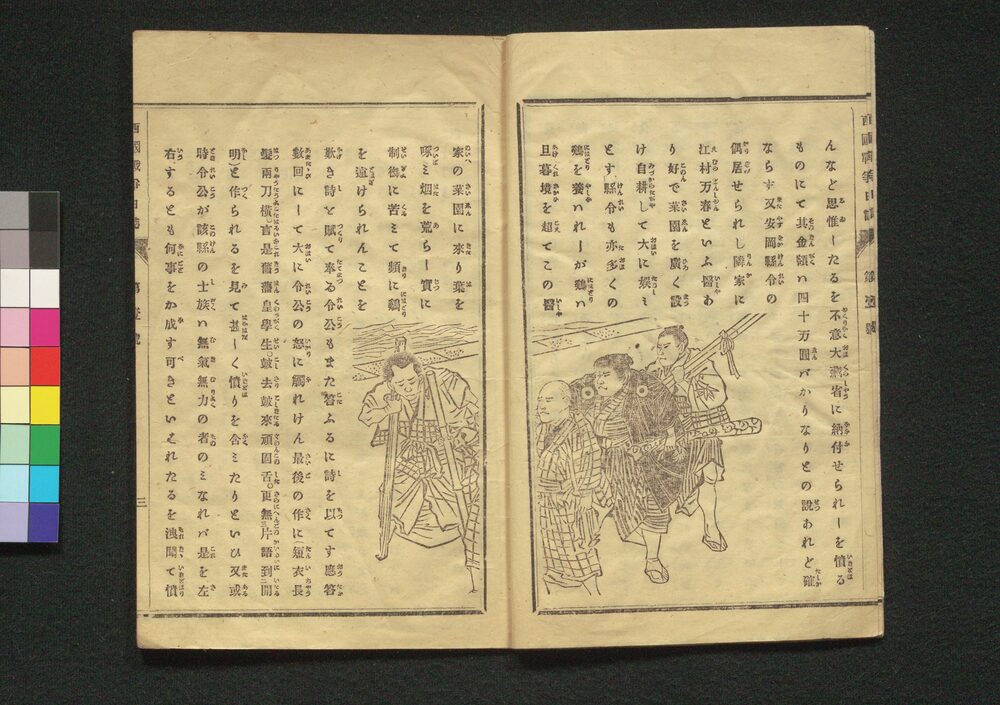 んなど思惟ーたるを不意大蔵省に納付せられーを憤る
ものにて其金額ハ四十万圓バかりなりとの説あれど確
ならず又安岡縣令の
偶居せられし隣家に
江村万春といふ醫あ
り好で菜園を廣く設
け自耕して大に娯ミ
とす縣令も亦多くの
鷄を養ハれーが鷄ハ
旦暮境を超てこの醫
家の菜園に來り葉を
啄ミ畑を荒らー實に
制御に苦ミて頻に鷄
を遠けられんことを
歎き詩を賦て奉る令公もまた答ふるに詩を以てす應答
數回にーて大に令公の怒に觸れけん最後の作に(短衣長
髮兩刀横。言是舊藩皇學生。歛去歛來頑固舌。更無片語到開
明)と作られるを見て甚ーく憤りを含ミたりといひ又或
時令公が該縣の士族ハ無氣無力の者のミなれバ是を左
右するとも何事をか成す可きといはれたるを洩聞て憤
三